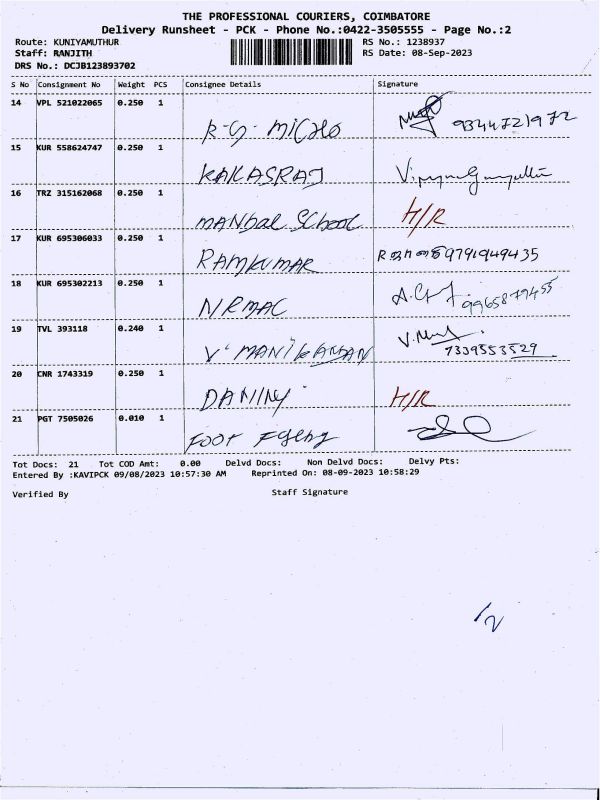 THE PROFESSIONAL COURIERS, COIMBATORE
Delivery Runsheet - PCK - Phone No.:0422-3505555 - Page No.:2
Route: KUNIYAMUTHUR RS No.: 1238937
Staff: RANJITH RS Date: 08-Sep-2023
DRS No.: DCJB123893702
S No Consignment No Weight PCS Consignee Details Signature
14 VPL 521022065 0.250 1
R-G- MICRO 9344721972
15 KUR 558624747 0.250 1
KAKASRAJ
16 TRZ 315162068 0.250 1
MANBAL School H/R
17 KUR 695306033 0.250 1
RAMKUMAR 9791949435
18 KUR 695302213 0.250 1
NRMAC 9965879455
19 TVL 393118 0.240 1
V. MANIKANDAN 7339553529
20 CNR 1743319 0.250 1
DANINY H/R
21 PGT 7505026 0.010 1
FOOT
Tot Docs: 21 Tot COD Amt: 0.00 Delvd Docs: Non Delvd Docs: Delvy Pts:
Entered By :KAVIPCK 09/08/2023 10:57:30 AM Reprinted On: 08-09-2023 10:58:29
Verified By Staff Signature